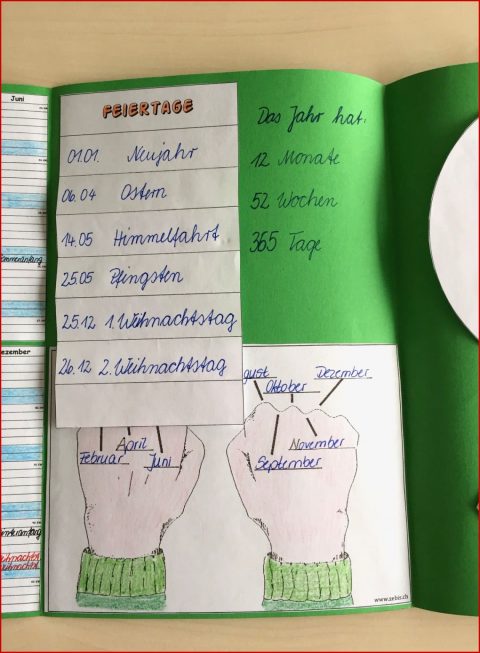 Juni
FEIERTAGE
01.01. Neujahr
06.04 Ostern
14.05 Himmelfahrt
25.05 Pfingsten
25.12 1. Weihnachtstag
26.12 2. Weihnachtstag
Das Jahr hat:
12 Monate
52 Wochen
365 Tage
ezember
gust
Oktober
Dezember
November
September
April
Februar
Juni
www.zebis.ch